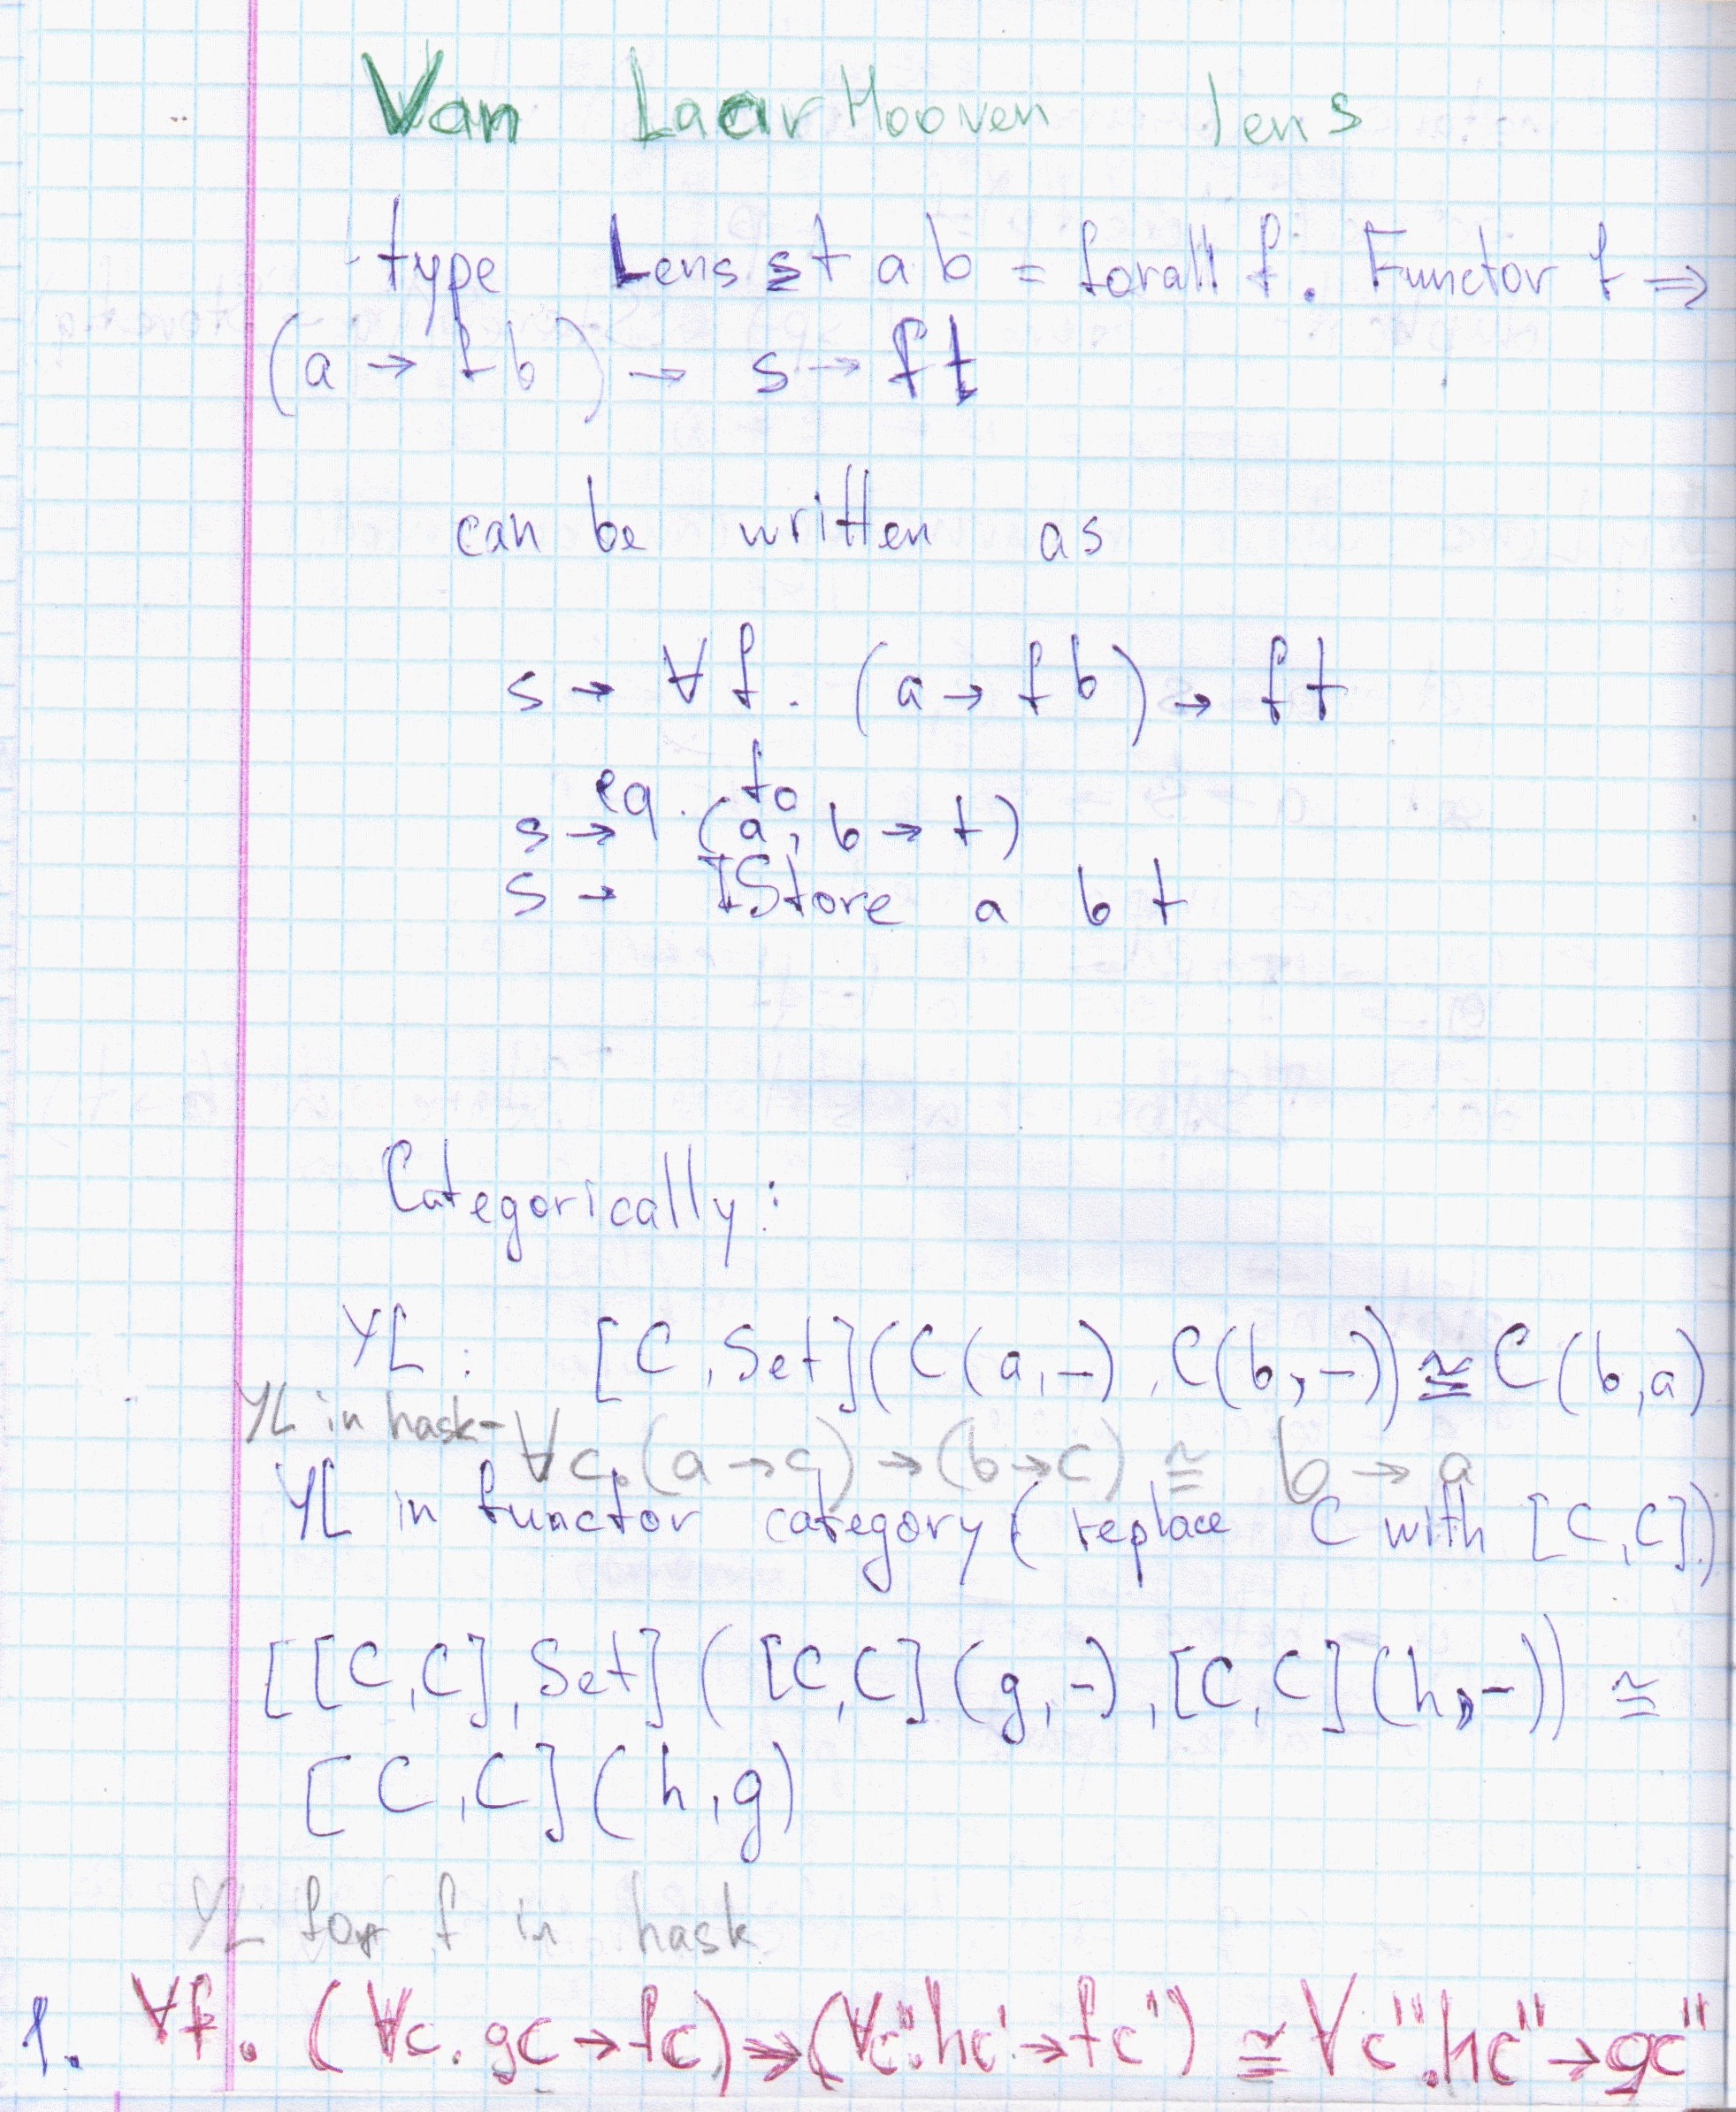 Van LaarHooven lens
type Lens s t a b = forall f. Functor f ⇒
(a → f b) → s → f t
can be written as
s → ∀ f. (a → f b) → f t
eq. to
s → (a, b → t)
s → IStore a b t
Categorically:
YL: [C, Set](C(a,-), C(b,-)) ≅ C(b,a)
YL in hask- ∀c.(a → c) → (b → c) ≅ b → a
YL in functor category (replace C with [C,C])
[[C,C], Set]([C,C](g,-), [C,C](h,-)) ≅
[C,C](h,g)
YL for f in hask
1. ∀f. (∀c. gc → fc) → (∀c'. hc' → fc') ≅ ∀c''. hc'' → gc''